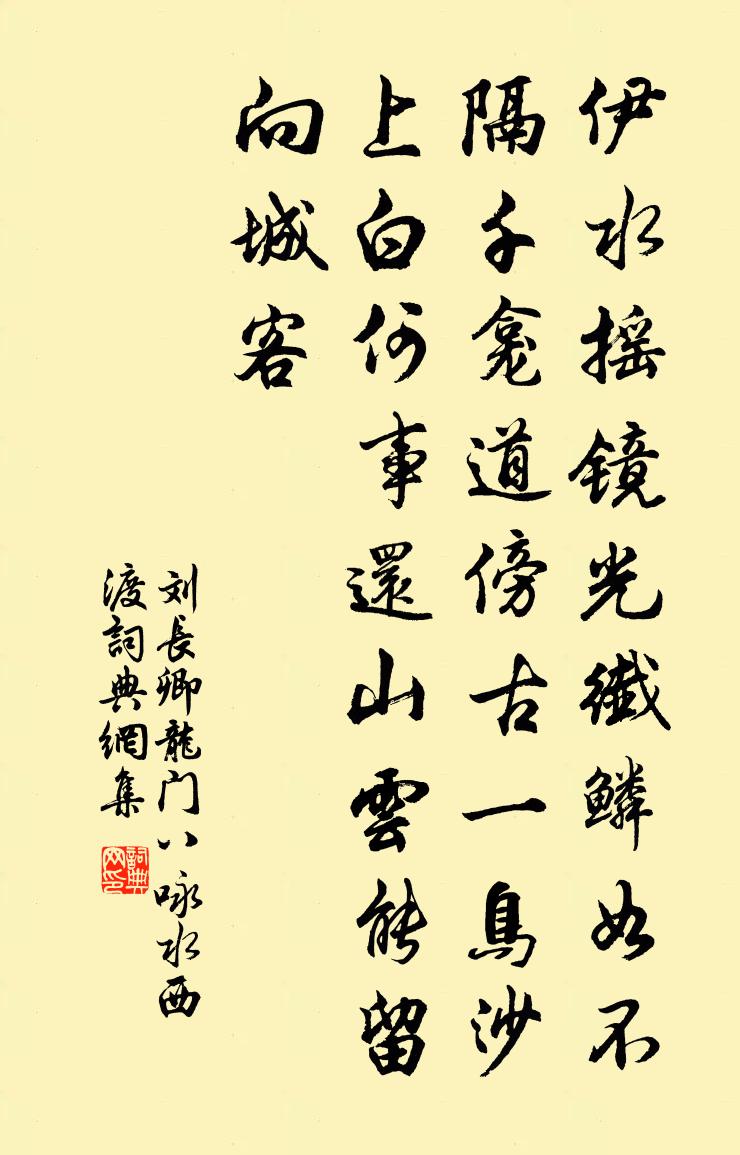 伊水摇镜光纎鳞如不
隔千龛道傍古一鳥沙
上白何事還山雲能留
向城客
刘長卿龍门八咏水西
渡詞典網集
詞典网印